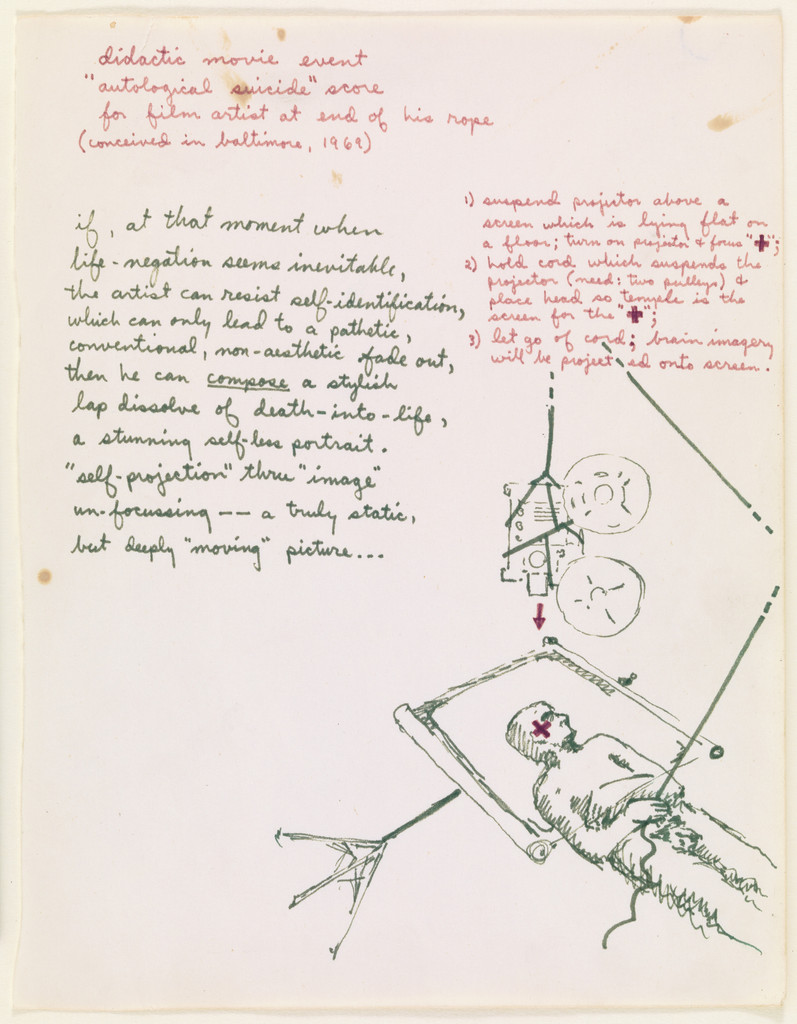 didactic movie event
"autological suicide" score
for film artist at end of his rope
(conceived in baltimore, 1969)
if, at that moment when
life-negation seems inevitable,
the artist can resist self-identification,
which can only lead to a pathetic,
conventional, non-aesthetic fade out,
then he can compose a stylish
lap dissolve of death-into-life,
a stunning self-less portrait.
"self-projection" thru "image"
un-focussing –– a truly static,
but deeply "moving" picture...
1) suspend projector above a
screen which is lying flat on
a floor; turn on projector & focus "+";
2) hold cord which suspends the
projector (need: two pulleys) &
place head so temple is the
screen for the "+";
3) let go of cord; brain imagery
will be project ed onto screen.